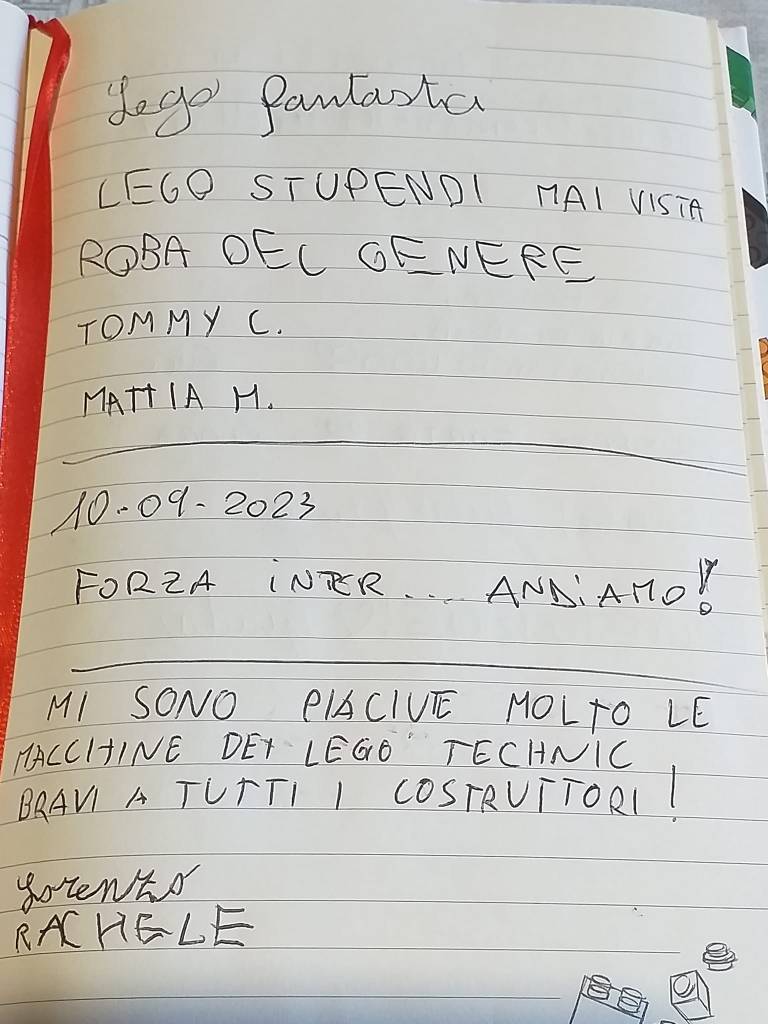 Lego fantastici
LEGO STUPENDI MAI VISTA
ROBA DEL GENERE
TOMMY C.
MATTIA M.
10-09-2023
FORZA iNTER.... ANDiAMO!
MI SONO PIACIUTE MOLTO LE
MACCHINE DEI LEGO TECHNIC
BRAVI A TUTTI I COSTRUTTORI!
Lorenzo
RACHELE